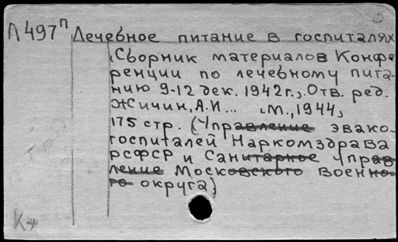 Л497п Лечебное питание в госпиталях
Сборник материалов Конфе-
ренции по лечебному пита-
нию 9-12 дек. 1942г., Отв. ред.
Жичин, А.И... М., 1944,
175 стр. (Управление эвако-
госпиталей Наркомздрава
РСФСР и Санитарное управ-
ление Московского военно-
го округа)